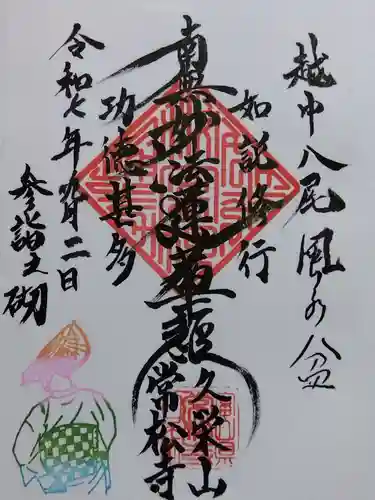 越中八尾風の盆
如説修行
南無妙法蓮華経
久栄山
常松寺
功徳甚多
令和七年九月二日
参詣之砌